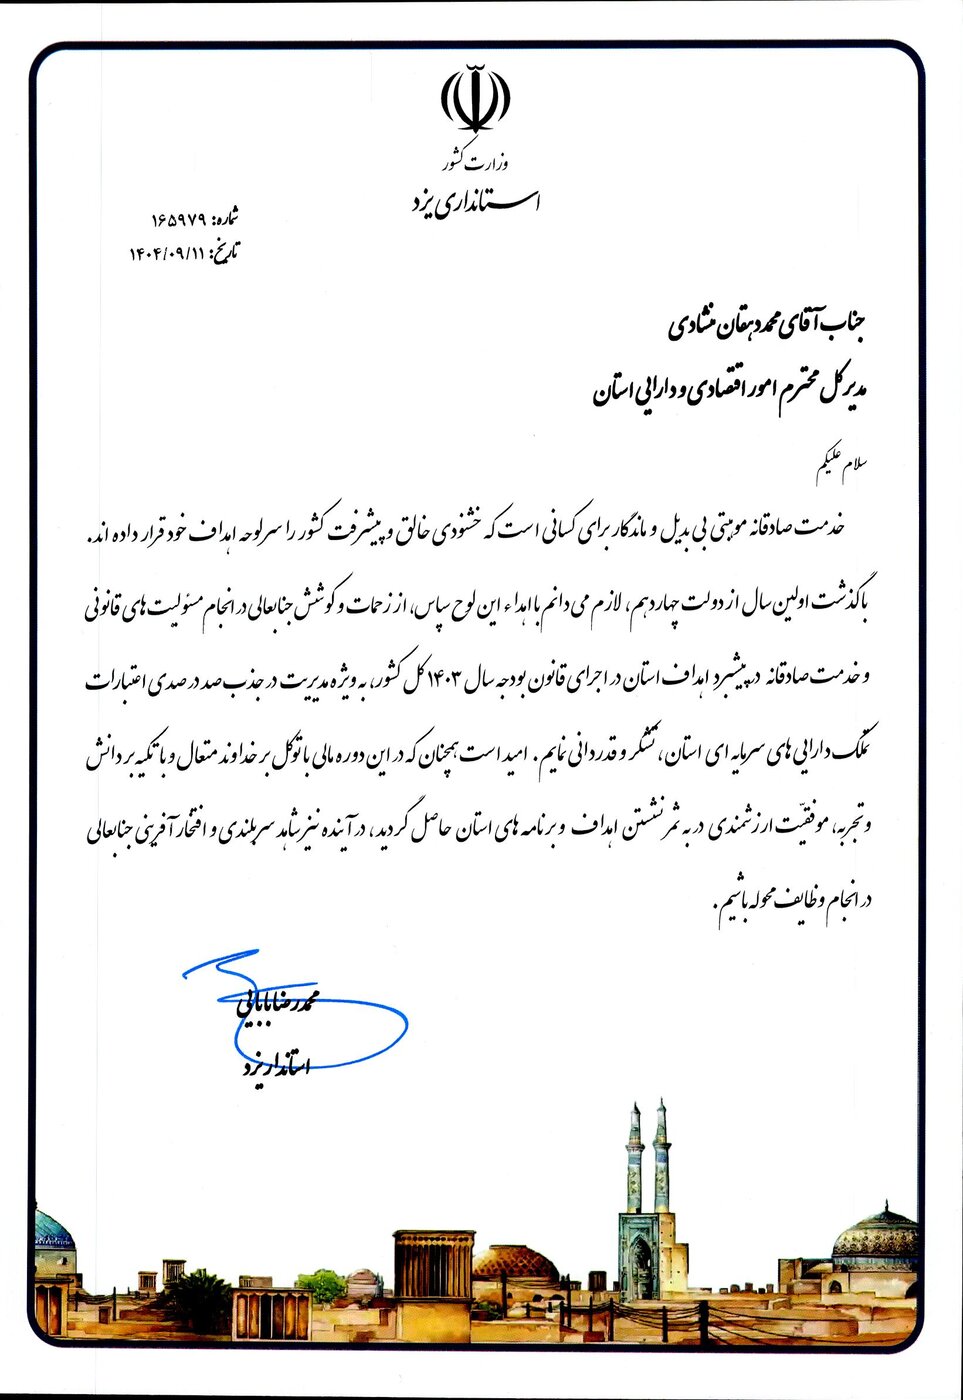 وزارت کشور
استانداری یزد
شماره: ۱۶۵۹۷۹
تاریخ: ۱۴۰۴/۰۹/۱۱
جناب آقای محمد دهقان منشادی
مدیرکل محترم امور اقتصادی و دارایی استان
سلام علیکم
خدمت صادقانه موهبتی بی بدیل و ماندگار برای کسانی است که خشنودی خالق و پیشرفت کشور را سرلوحه اهداف خود قرار داده اند.
با گذشت اولین سال از دولت چهاردهم، لازم می دانم با اهداء این لوح سپاس، از زحمات و کوشش جنابعالی در انجام مسئولیت های قانونی
و خدمت صادقانه در پیشبرد اهداف استان در اجرای قانون بودجه سال ۱۴۰۳ کل کشور، به ویژه مدیریت در جذب صد در صدی اعتبارات
تملک دارایی های سرمایه ای استان، تشکر و قدردانی نمایم. امید است همچنان که در این دوره مالی با توکل بر خداوند متعال و با تکیه بر دانش
و تجربه، موفقیّت ارزشمندی در به ثمر نشستن اهداف و برنامه های استان حاصل گردید، در آینده نیز شاهد سربلندی و افتخار آفرینی جنابعالی
در انجام وظایف محوله باشیم.
محمدرضا بابایی
استاندار یزد